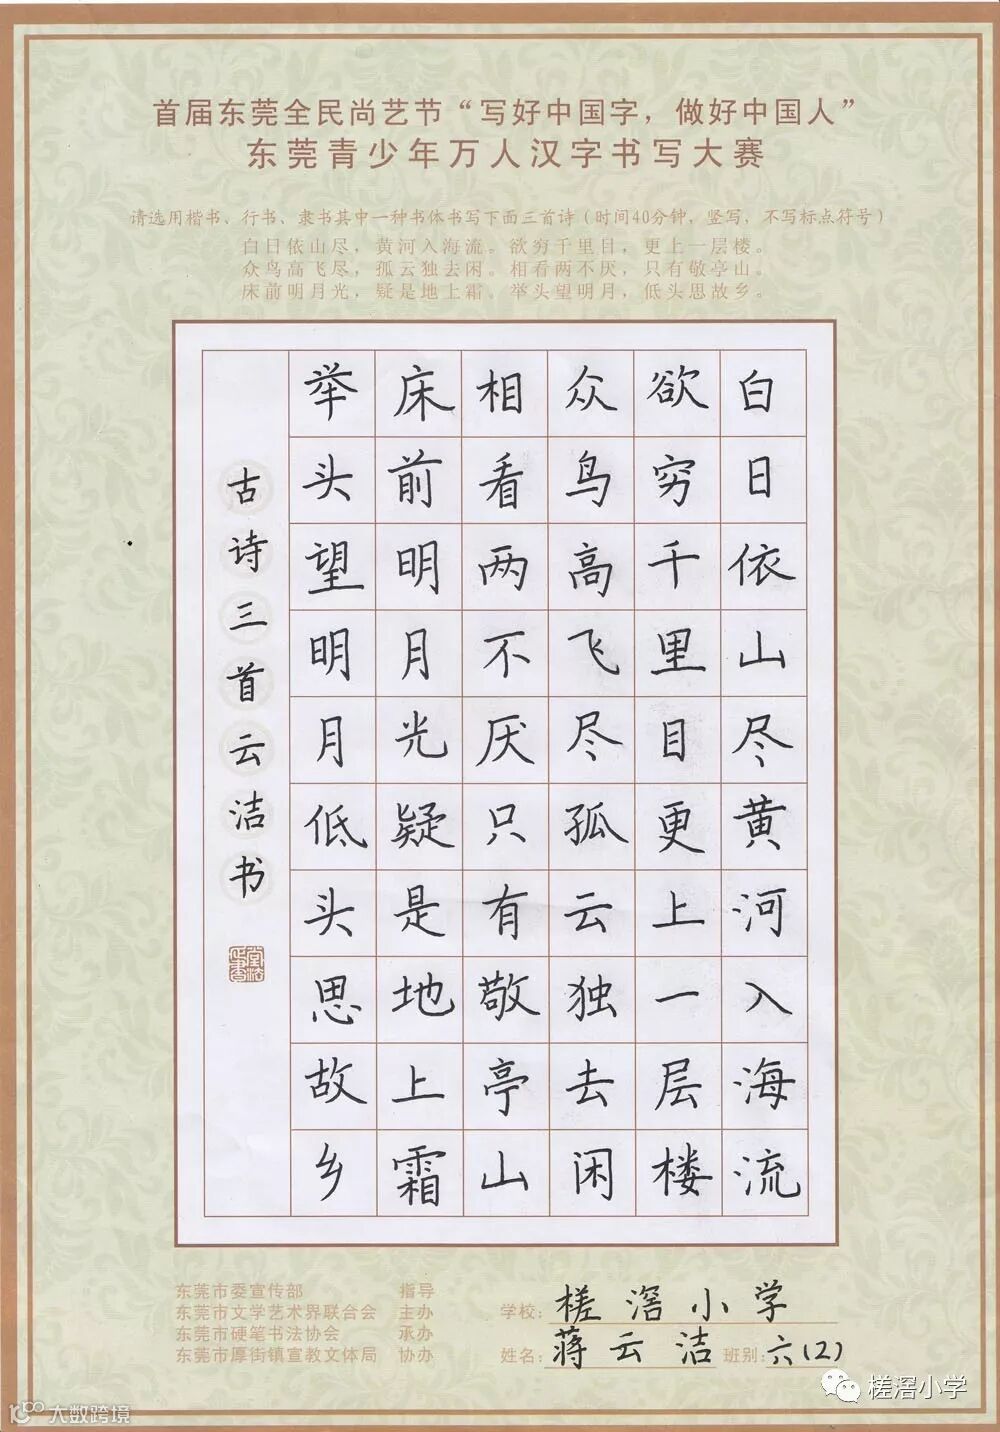 首届东莞全民尚艺节“写好中国字，做好中国人”
东莞青少年万人汉字书写大赛
请选用楷书、行书、隶书其中一种书体书写下面三首诗（时间40分钟，竖写，不写标点符号）
白日依山尽，黄河入海流。欲穷千里目，更上一层楼。
众鸟高飞尽，孤云独去闲。相看两不厌，只有敬亭山。
床前明月光，疑是地上霜。举头望明月，低头思故乡。
白日依山尽黄河入海流
欲穷千里目更上一层楼
众鸟高飞尽孤云独去闲
相看两不厌只有敬亭山
床前明月光疑是地上霜
举头望明月低头思故乡
古诗三首云洁书
东莞市委宣传部 指导
东莞市文学艺术界联合会 主办
东莞市硬笔书法协会 承办
东莞市厚街镇宣教文体局 协办
学校：槎滘小学
姓名：蒋云洁 班别：六（2）
槎滘小学
大数跨境